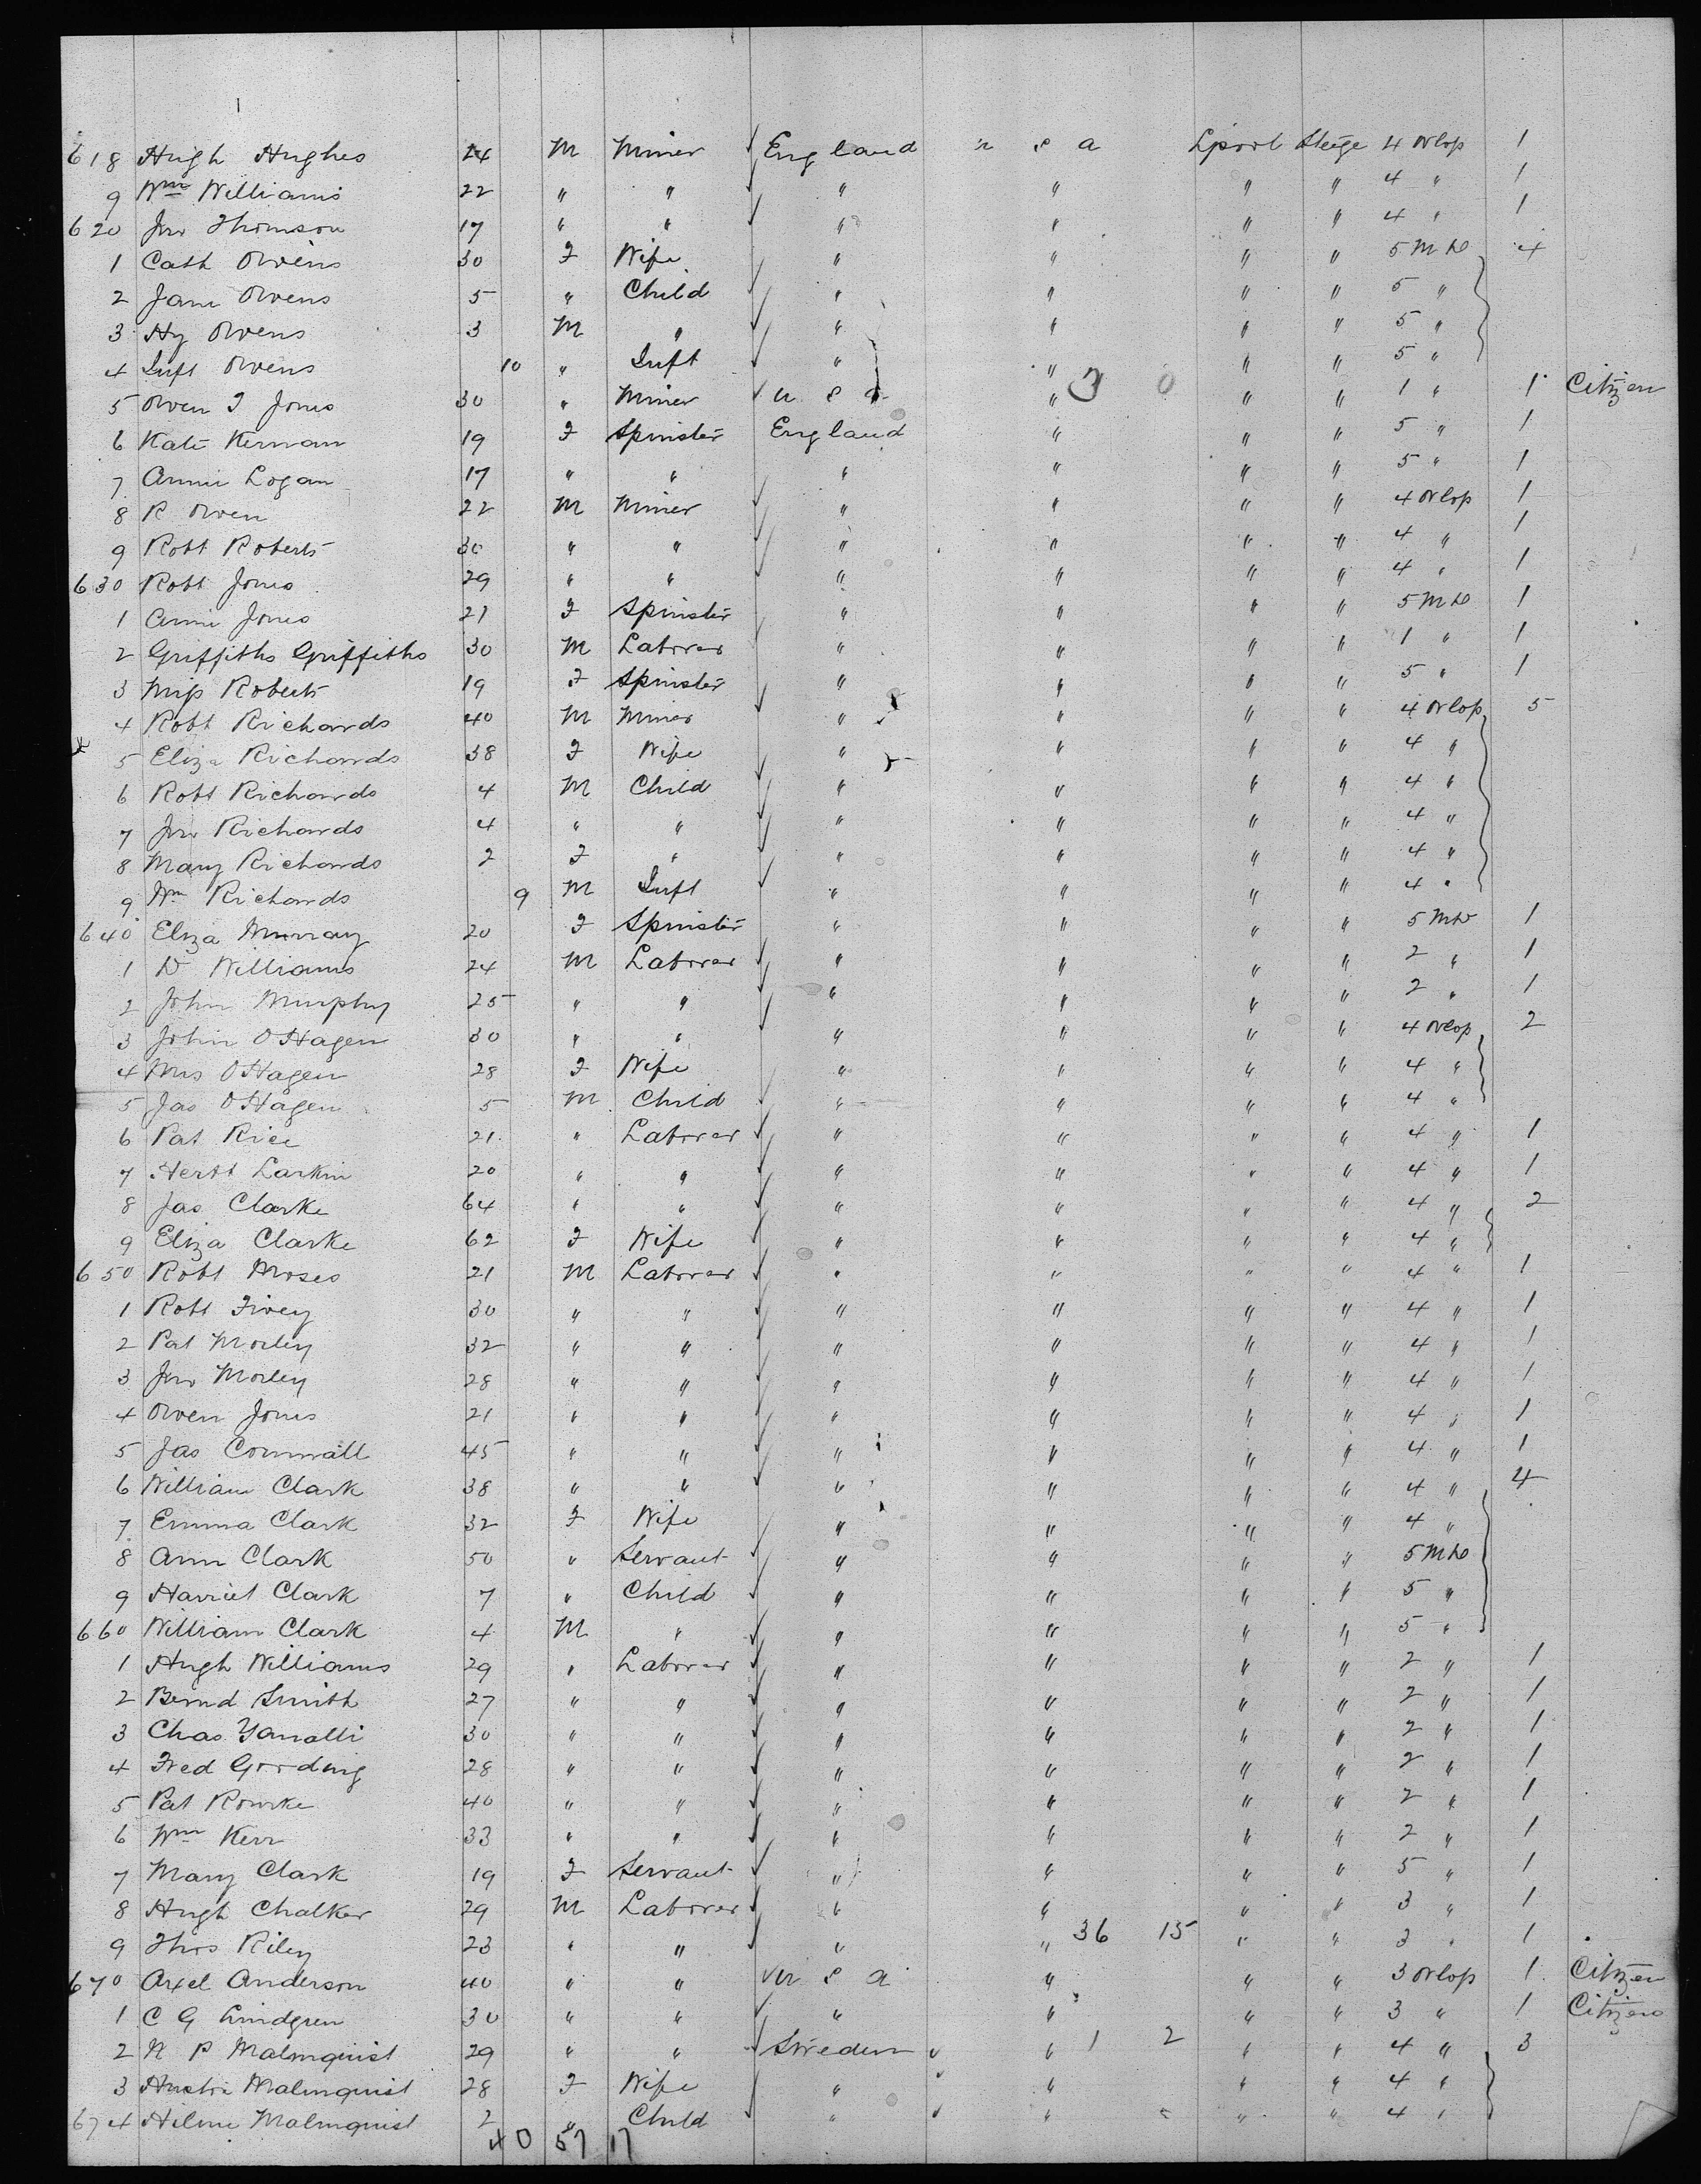 618 Hugh Hughes 24 M Miner England U S A Lpool Steige 4 Orlop 1
9 Wm Williams 22 " " " " " " 4 " 1
620 Jno Thomson 17 " " " " " " 4 " 1
1 Cath Owens 30 F Wife " " " " 5 M D 4
2 Jane Owens 5 " Child " " " " 5 "
3 Hy Owens 3 M " " " " " 5 "
4 Inft Owens 10 " Inft " " " " 5 "
5 Owen J Jones 30 " Miner U S A " 3 0 " " 1 " 1 Citizen
6 Kate Kernan 19 F Spinster England " " " 5 " 1
7 Annie Logan 17 " " " " " " 5 " 1
8 R Owen 22 M Miner " " " " 4 Orlop 1
9 Robt Roberts 30 " " " " " " 4 " 1
630 Robt Jones 29 " " " " " " 4 " 1
1 Annie Jones 21 F Spinster " " " " 5 M D 1
2 Griffiths Griffiths 30 M Laborer " " " " 1 " 1
3 Miss Roberts 19 F Spinster " " " " 5 " 1
4 Robt Richards 40 M Miner " " " " 4 Orlop 5
5 Eliza Richards 38 F Wife " " " " 4 "
6 Robt Richards 4 M Child " " " " 4 "
7 Jno Richards 4 " " " " " " 4 "
8 Mary Richards 2 F " " " " " 4 "
9 Wm Richards 9 M Inft " " " " 4 "
640 Eliza Murray 20 F Spinster " " " " 5 M D 1
1 D Williams 24 M Laborer " " " " 2 " 1
2 John Murphy 25 " " " " " " 2 " 1
3 John O Hagen 30 " " " " " " 4 Orlop 2
4 Mrs O Hagen 28 F Wife " " " " 4 "
5 Jas O Hagen 5 M Child " " " " 4 "
6 Pat Rice 21 " Laborer " " " " 4 " 1
7 Herbt Larkin 20 " " " " " " 4 " 1
8 Jas Clarke 64 " " " " " " 4 " 2
9 Eliza Clarke 62 F Wife " " " " 4 "
650 Robt Moses 21 M Laborer " " " " 4 " 1
1 Robt Fivey 30 " " " " " " 4 " 1
2 Pat Morley 32 " " " " " " 4 " 1
3 Jno Morley 28 " " " " " " 4 " 1
4 Owen Jones 21 " " " " " " 4 " 1
5 Jas Cornwall 45 " " " " " " 4 " 1
6 William Clark 38 " " " " " " 4 " 4
7 Emma Clark 32 F Wife " " " " 4 "
8 Ann Clark 50 " Servant " " " " 5 M D
9 Harriet Clark 7 " Child " " " " 5 "
660 William Clark 4 M " " " " " 5 "
1 Hugh Williams 29 " Laborer " " " " 2 " 1
2 Bernd Smith 27 " " " " " " 2 " 1
3 Chas Yanalli 30 " " " " " " 2 " 1
4 Fred Gooding 28 " " " " " " 2 " 1
5 Pat Rourke 40 " " " " " " 2 " 1
6 Wm Kerr 33 " " " " " " 2 " 1
7 Mary Clark 19 F Servant " " " " 5 " 1
8 Hugh Chalker 29 M Laborer " " " " 3 " 1
9 Thos Riley 23 " " " " 36 15 " " 3 " 1
670 Axel Anderson 40 " " U S A " " " 3 Orlop 1 Citizen
1 C G Lindgren 30 " " " " " " 3 " 1 Citizen
2 N P Malmquist 29 " " Sweden " 1 2 " " 4 " 3
3 Malmquist 28 F Wife " " " " 4 "
674 Hilme Malmquist 2 " Child " " " " 4 "
40 57 17